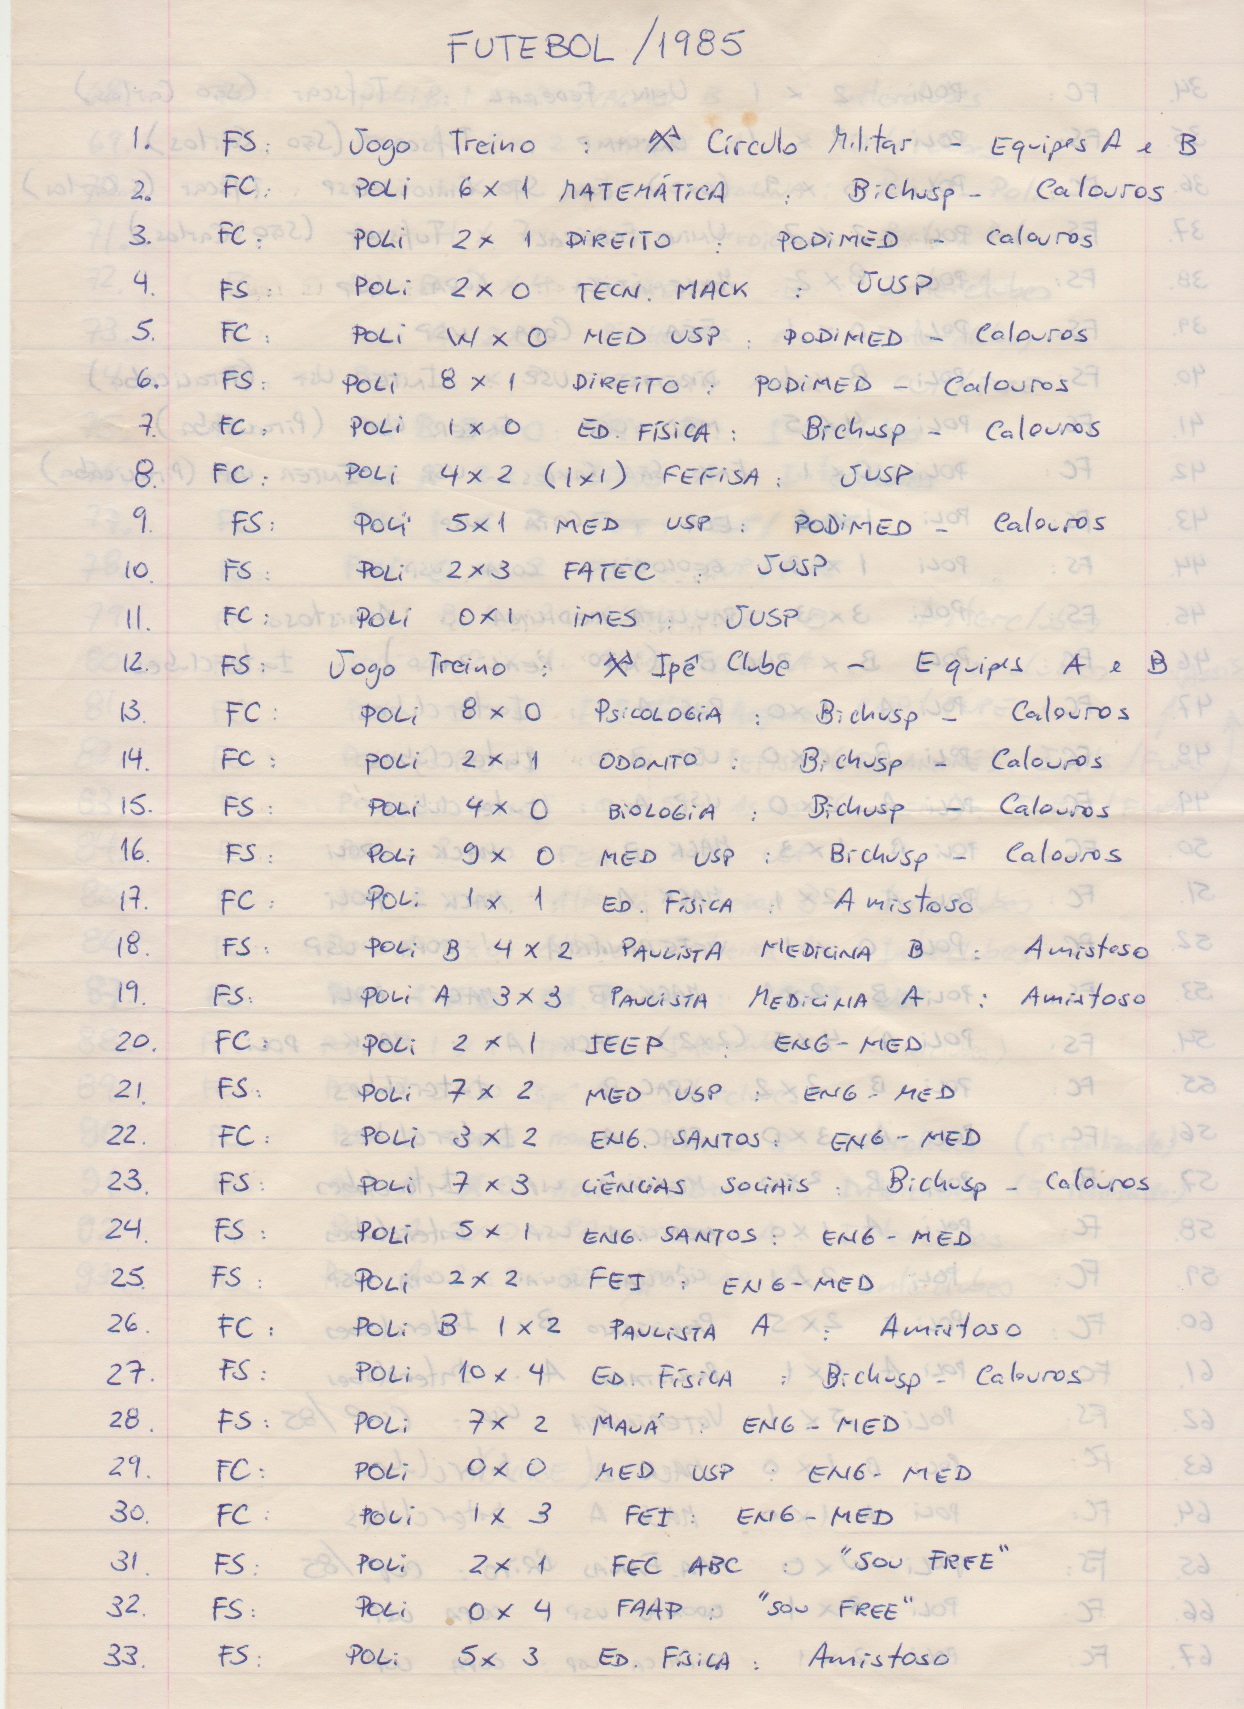 FUTEBOL /1985
1. FS: Jogo Treino : Círculo Militar - Equipes A e B
2. FC: POLI 6 x 1 MATEMÁTICA : Bichusp - Calouros
3. FC: POLI 2 x 1 DIREITO : PODIMED - Calouros
4. FS: POLI 2 x 0 TECN. MACK : JUSP
5. FC: POLI W x 0 MED USP : PODIMED - Calouros
6. FS: POLI 8 x 1 DIREITO : PODIMED - Calouros
7. FC: POLI 1 x 0 ED. FÍSICA : Bichusp - Calouros
8. FC: POLI 4 x 2 (1x1) FEFISA : JUSP
9. FS: POLI 5 x 1 MED USP : PODIMED - Calouros
10. FS: POLI 2 x 3 FATEC : JUSP
11. FC: POLI 0 x 1 IMES : JUSP
12. FS: Jogo Treino : Ipê Clube - Equipes A e B
13. FC: POLI 8 x 0 PSICOLOGIA : Bichusp - Calouros
14. FC: POLI 2 x 1 ODONTO : Bichusp - Calouros
15. FS: POLI 4 x 0 BIOLOGIA : Bichusp - Calouros
16. FS: POLI 9 x 0 MED USP : Bichusp - Calouros
17. FC: POLI 1 x 1 ED. FÍSICA : Amistoso
18. FS: POLI B 4 x 2 PAULISTA MEDICINA B : Amistoso
19. FS: POLI A 3 x 3 PAULISTA MEDICINA A : Amistoso
20. FC: POLI 2 x 1 IEEP : ENG-MED
21. FS: POLI 7 x 2 MED USP : ENG-MED
22. FC: POLI 3 x 2 ENG. SANTOS : ENG-MED
23. FS: POLI 7 x 3 CIÊNCIAS SOCIAIS : Bichusp - Calouros
24. FS: POLI 5 x 1 ENG SANTOS : ENG-MED
25. FS: POLI 2 x 2 FEI : ENG-MED
26. FC: POLI B 1 x 2 PAULISTA A : Amistoso
27. FS: POLI 10 x 4 ED. FÍSICA : Bichusp - Calouros
28. FS: POLI 7 x 2 MAUÁ : ENG-MED
29. FC: POLI 0 x 0 MED USP : ENG-MED
30. FC: POLI 1 x 3 FEI : ENG-MED
31. FS: POLI 2 x 1 FEC ABC : "SOU FREE"
32. FS: POLI 0 x 4 FAAP : "SOU FREE"
33. FS: POLI 5 x 3 ED. FÍSICA : Amistoso